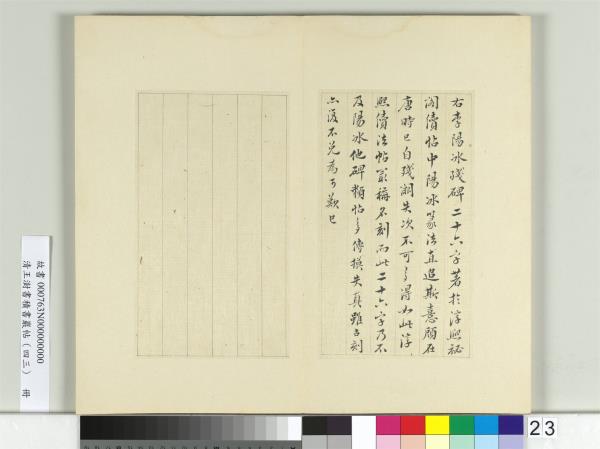 右李陽冰殘碑二十六字著於淳熙秘
閣續帖中陽冰篆法直追斯憙顧在
唐時已自殘闕失次不可多得如此淳
熙續法帖最稱名刻而此二十六字乃不
及陽冰他碑類帖多傳摸失真雖古刻
亦復不免為可歎已
故書 000763N000000000
清王澍書積書巖帖(四三) 冊
23